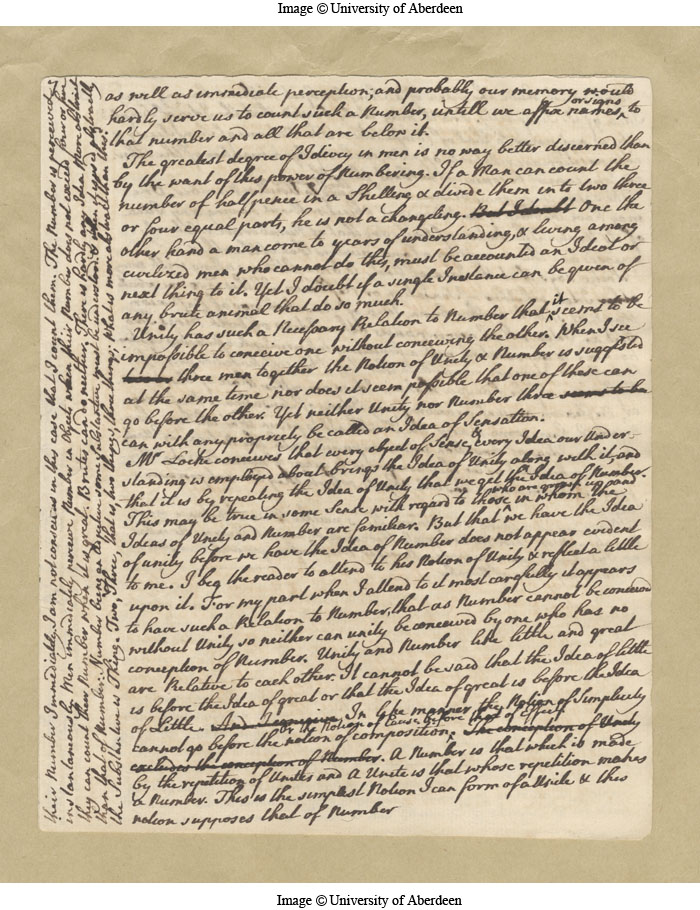 Image © University of Aberdeen
as well as immediate perception; and probably our memory would
hardly serve us to count such a Number, untill we affix names or signs to
that number and all that are below it.
The greatest degree of Idiocy in men is no way better discerned than
by the want of this power of Numbering. If a Man can count the
number of halfpence in a Shelling & divide them into two three
or four equal parts, he is not a changeling. But I doubt One the
other hand a man come to years of understanding, & living among
civilized men who cannot do this, must be accounted an Ideot or
next thing to it. Yet I doubt if a single Instance can be given of
any brute animal that do so much.
Unity has such a Necessary Relation to Number that it seems to be
impossible to conceive one without conceiving the other. When I see
three men together the Notion of Unity & Number is suggested
at the same time nor does it seem possible that one of these can
go before the other. Yet neither Unity nor Number seems to be
can with any propriety be called an Idea of Sensation.
Mr Locke conceives that every object of Sense & every Idea our Under-
standing is employed about brings the Idea of Unity along with it, and
that it is by repeating the Idea of Unity that we get the Idea of Number.
This may be true in some Sense with regard to those who are grown up and in whom the
Ideas of Unity and Number are familiar. But that we have the Idea
of unity before we have the Idea of Number does not appear evident
to me. I beg the reader to attend to his Notion of Unity & reflect a little
upon it. For my part when I attend to it most carefully it appears
to have such a Relation to Number, that as Number cannot be conceived
without Unity so neither can unity be conceived by one who has no
conception of Number. Unity and Number like little and great
are Relative to each other. It cannot be said that the Idea of little
is before the Idea of great or that the Idea of great is before the Idea
of little. And I In like manner the Notion of Simplicity
cannot go before the notion of composition. Or the Notion of Cause before that of Effect. The conception of Unity
excludes the conception of Number. A Number is that which is made
by the repetition of Unites and A Unite is that whose repetition makes
a Number. This is the simplest Notion I can form of a Unite & this
notion supposes that of Number
their Number Immediately, I am not conscious in this case that I count them. The Number is perceived
instantaneously. Men immediately perceive Number in Objects when this Number does not exceed four or five
they can count their Number when it is great. Brutes can do neither. There is hardly any Idea more abstract
than that of Number. Number being an Adjective some substantive must be understood & when it is generally
the Substantive is Thing. Two, Three, that is, two things, three things; What is more abstract than this.
Image © University of Aberdeen